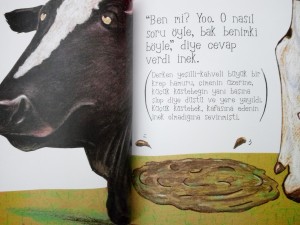 "Ben mi? Yoo. O nasıl
soru öyle, bak benimki
böyle," diye cevap
verdi inek.
(Derken yeşilli-kahveli büyük bir
krep hamuru, çimenin üzerine,
küçük köstebeğin yanı başına
şlap diye düştü ve yere yayıldı.
Küçük köstebek, kafasına edenin
inek olmadığına sevinmişti.)